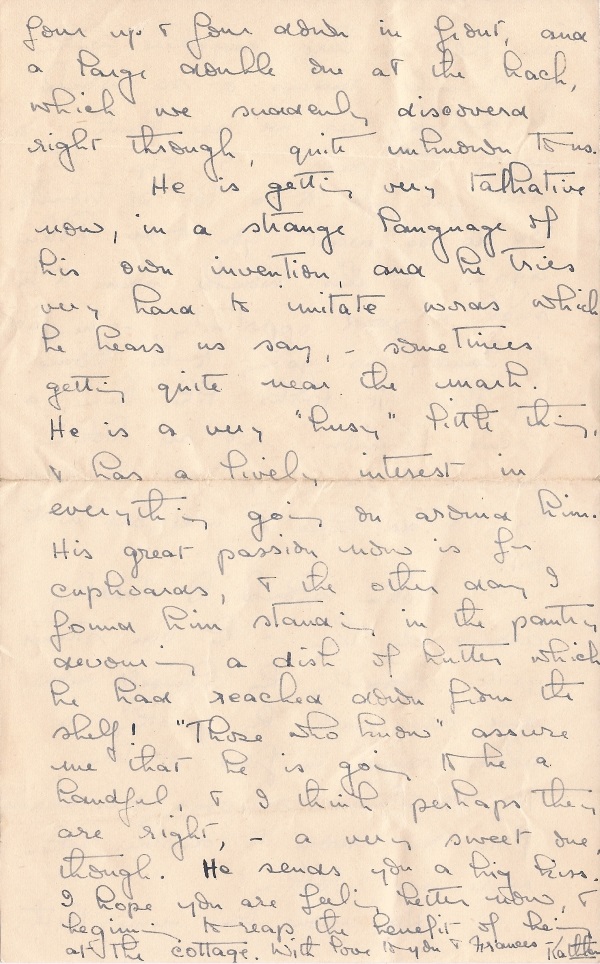 four up & four down in front, and
a large double one at the back,
which we suddenly discovered
right through, quite unknown to us.
He is getting very talkative
now, in a strange language of
his own invention, and he tries
very hard to imitate words which
he hears us say, - sometimes
getting quite near the mark.
He is a very "busy" little thing,
& has a lively interest in
everything going on around him.
His great passion now is for
cupboards, & the other day I
found him standing in the pantry
devouring a dish of butter which
he had reached down from the
shelf! "Those who know" assure
me that he is going to be a
handful, & I think perhaps they
are right, - a very sweet one,
though. He sends you a big kiss.
I hope you are feeling better now, &
beginning to reap the benefit of being
at the cottage. With love to you & Frances -